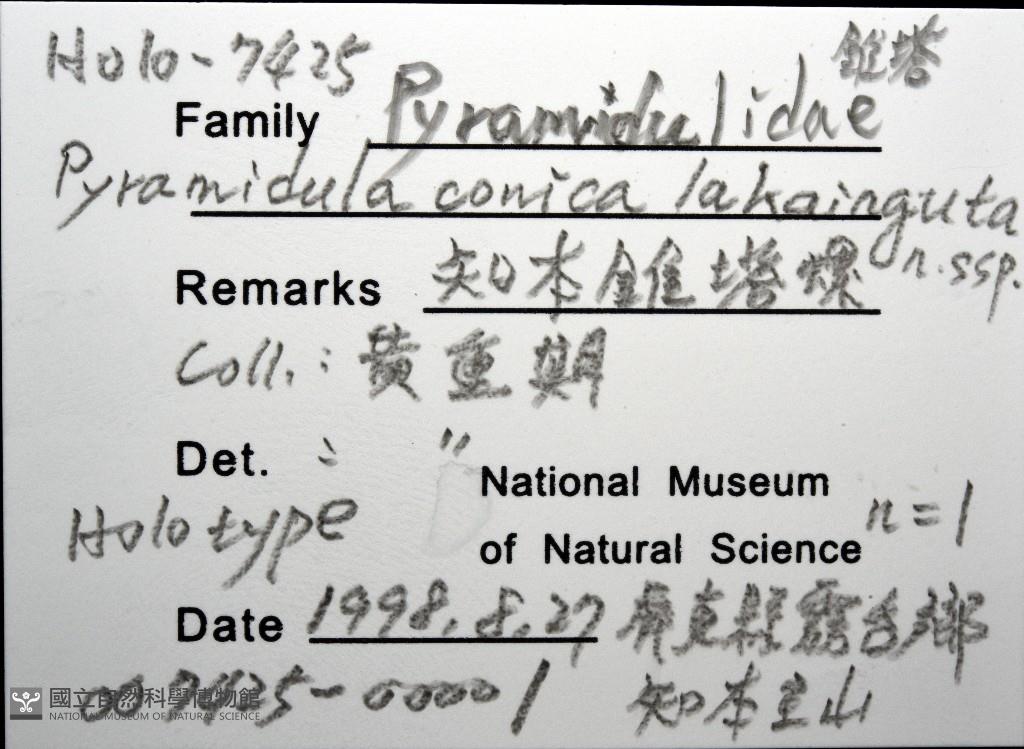 Holo-7425 錐塔
Family Pyramidulidae
Pyramidula conica lakainguta
n.ssp.
Remarks 知本錐塔螺
Coll.: 黄重期
Det. : "
National Museum
Holotype n=1
of Natural Science
Date 1998.8.27 屏東縣霧台鄉
007425-00001 知本主山
國立自然科學博物館
NATIONAL MUSEUM OF NATURAL SCIENCE